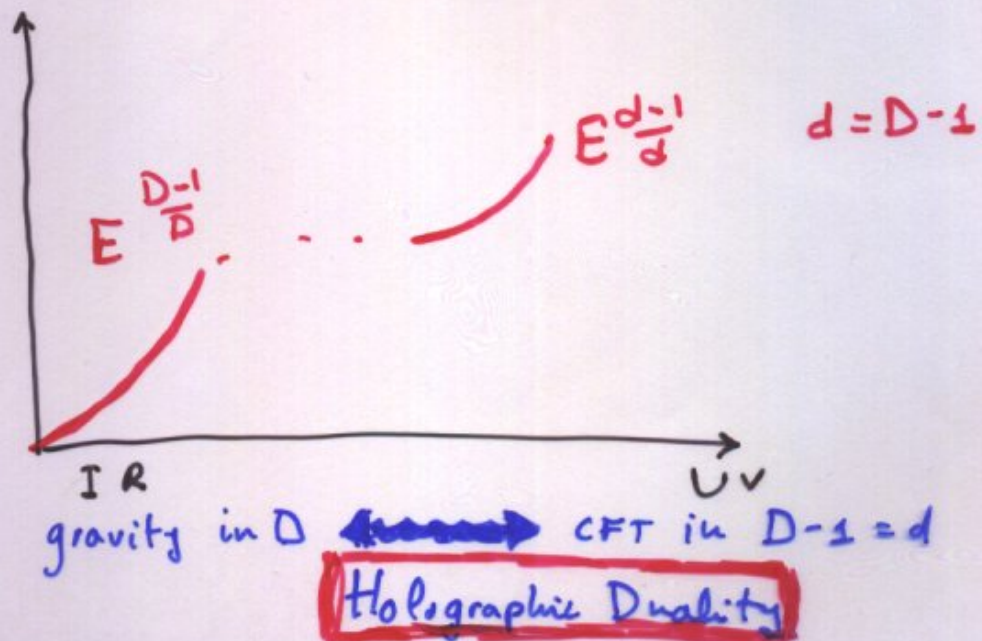 E^{\frac{d-1}{d}} d = D-1
E^{\frac{D-1}{D}}
IR UV
gravity in D ⟷ CFT in D-1 = d
Holographic Duality